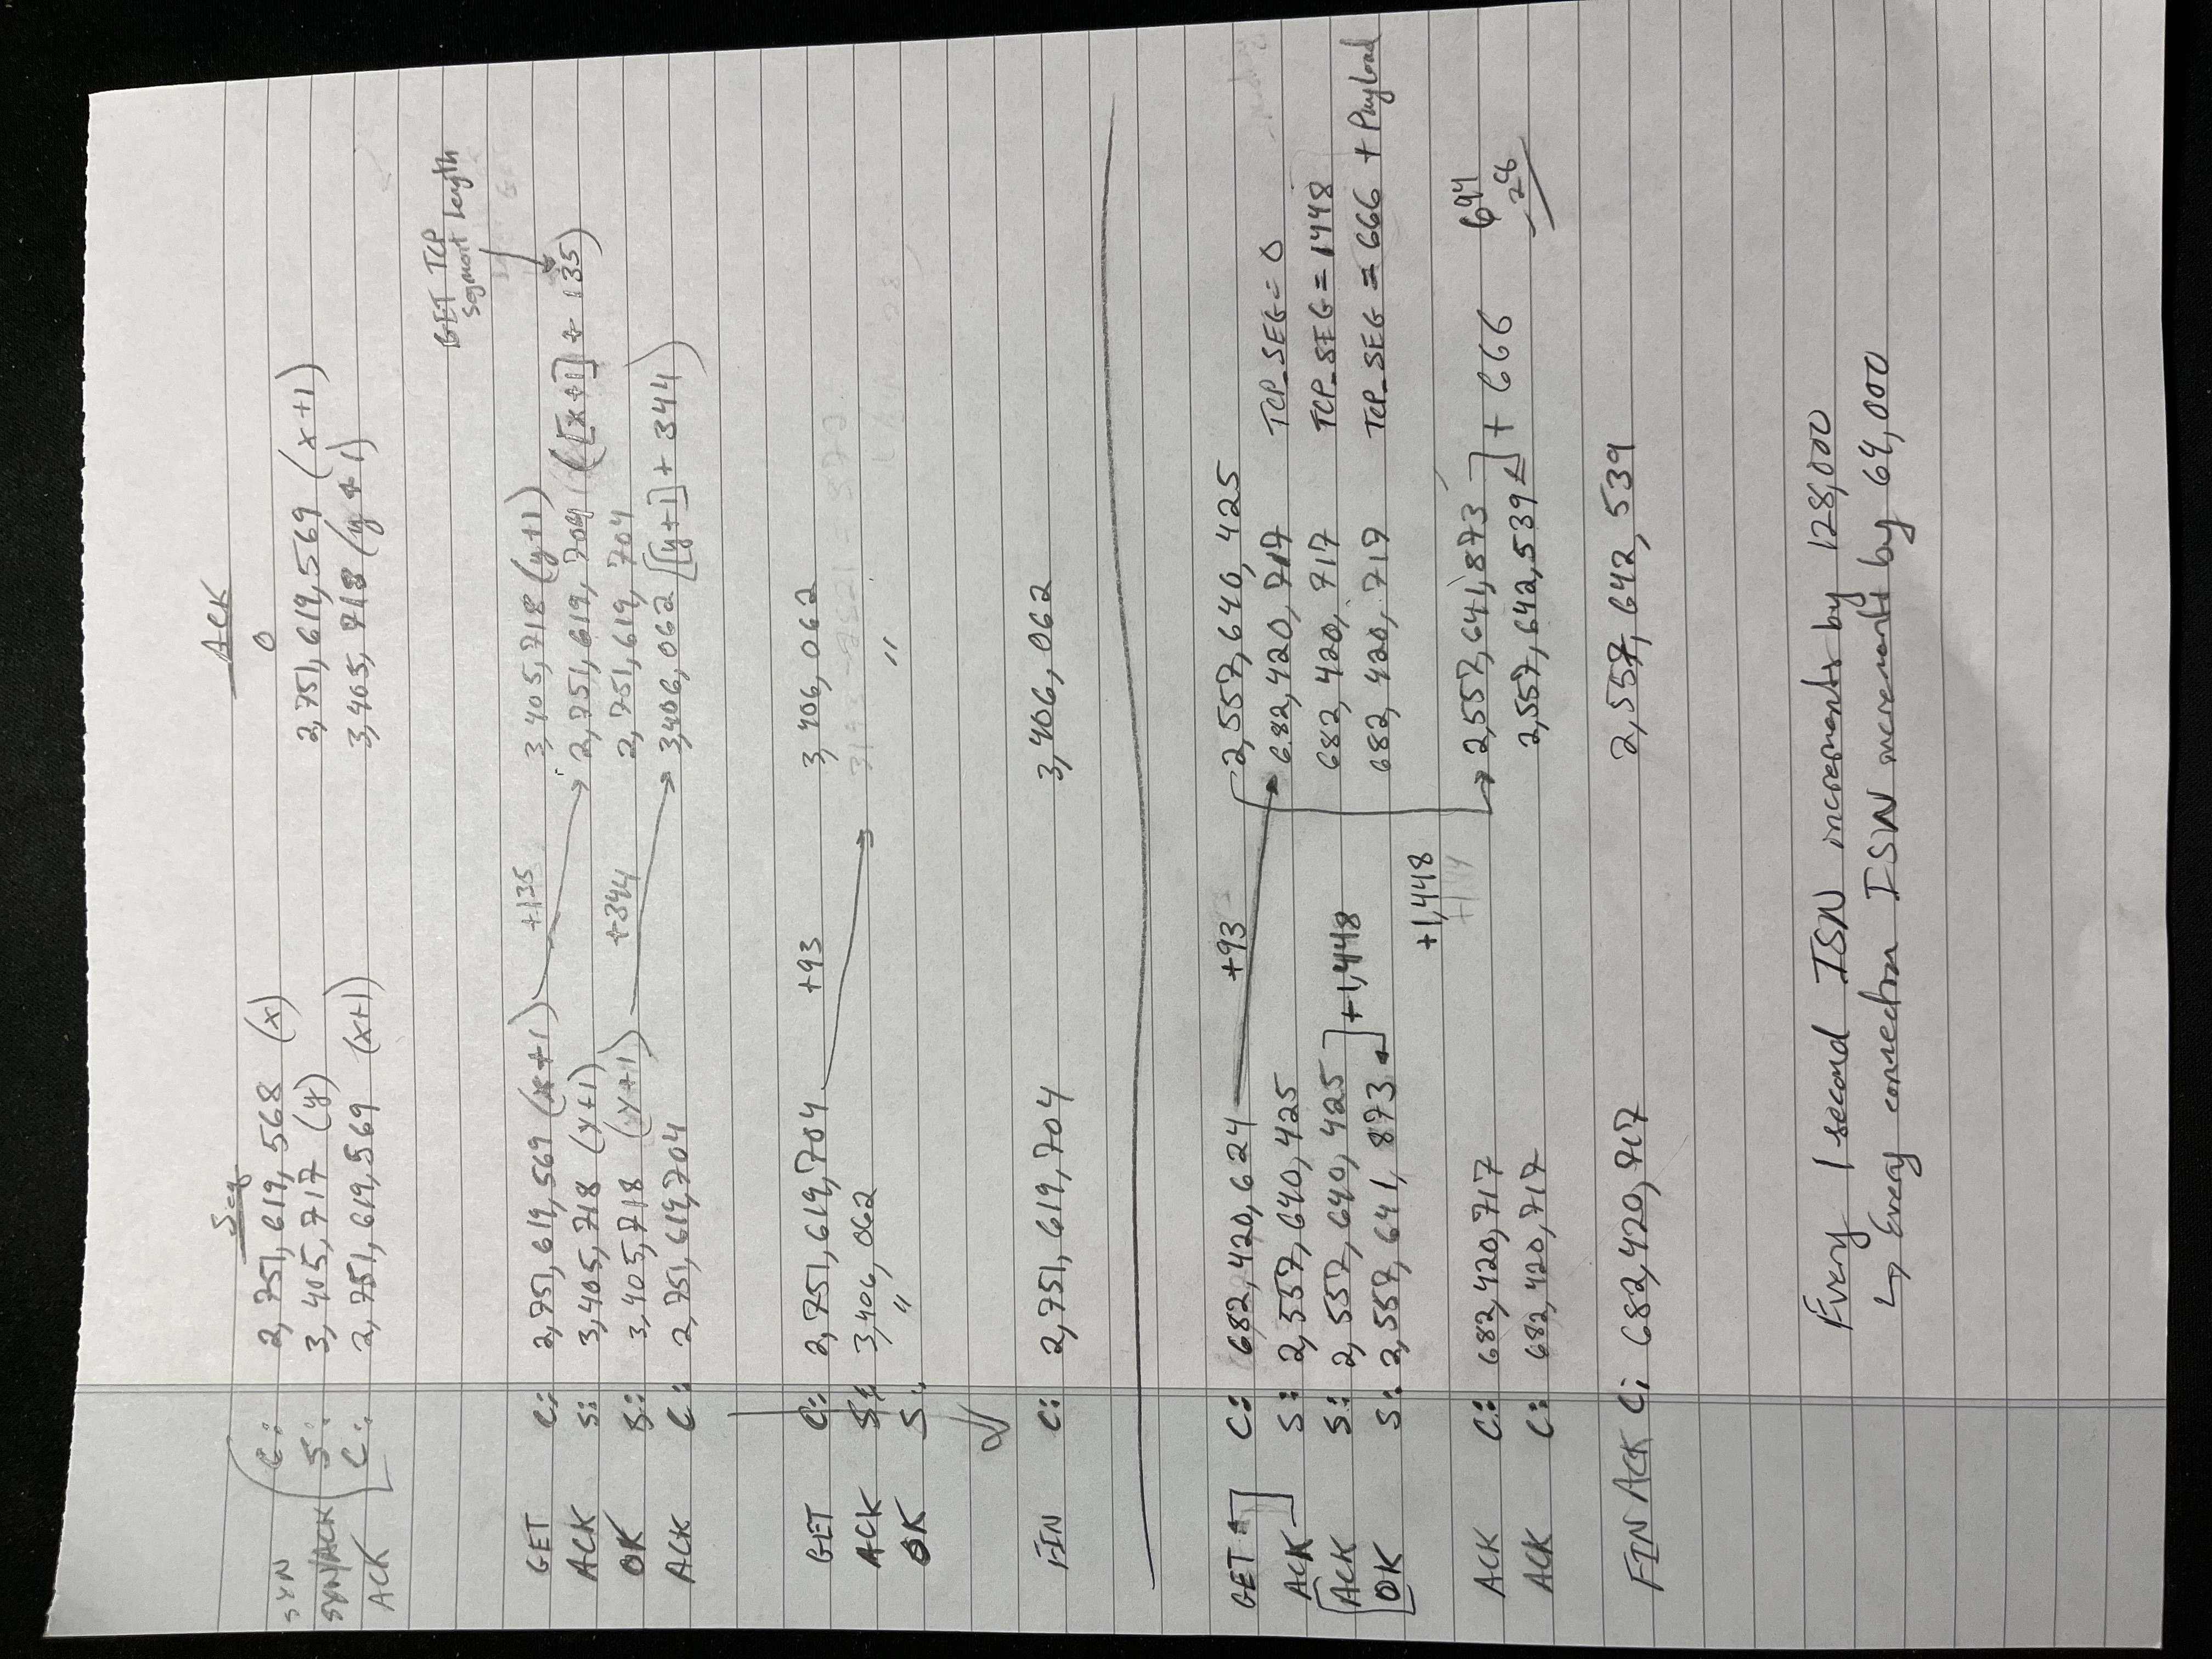 Seq ACK
SYN C: 2,751,619,568 (x) 0
SYN/ACK S: 3,405,717 (y) 2,751,619,569 (x+1)
ACK C: 2,751,619,569 (x+1) 3,405,718 (y+1)
GET TCP
Segment Length
GET C: 2,751,619,569 (x+1) +135 3,405,718 (y+1)
ACK S: 3,405,718 (y+1) 2,751,619,704 ([x+1] + 135)
OK S: 3,405,718 (y+1) +344 2,751,619,704
ACK C: 2,751,619,704 3,406,062 ([y+1] + 344)
GET C: 2,751,619,704 +93 3,406,062
ACK S: 3,406,062
OK S: " "
FIN C: 2,751,619,704 3,406,062
GET C: 682,420,624 +93 2,557,640,425
ACK S: 2,557,640,425 682,420,717 TCP_SEG = 0
ACK S: 2,557,640,425 +1,448 682,420,717 TCP_SEG = 1448
OK S: 2,557,641,873 682,420,717 TCP_SEG = 666 + Payload
+1,448
ACK C: 682,420,717 2,557,641,873 + 666 694
ACK C: 682,420,717 2,557,642,539 -28
FIN ACK C: 682,420,717 2,557,642,539
Every 1 second ISN increments by 128,000
↳ Every connection ISN increments by 64,000